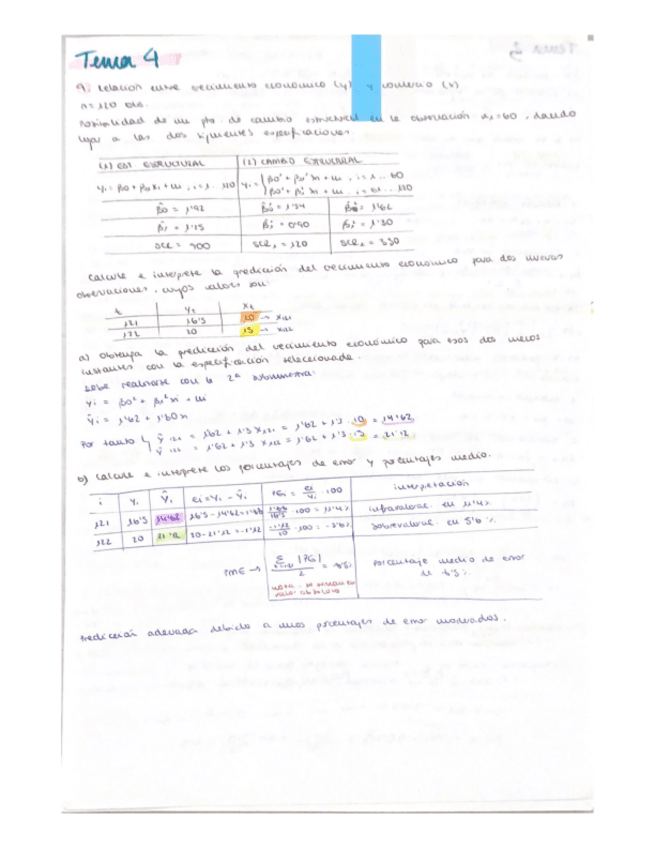 Tema 4
9. relación entre crecimiento económico (y) y comercio (x)
n=120 obs.
posibilidad de un pto. de cambio estructural en la observación n₁=60, dando
lugar a las dos siguientes especificaciones.
(1) EST ESTRUCTURAL (2) CAMBIO ESTRUCTURAL
SCR = 900 SCR₁ = 120 SCR₂ = 330
Calcule e interprete la predicción del crecimiento económico para dos nuevas
observaciones, cuyos valores son:
t Yt Xt
121 16'5 10 → X121
122 20 15 → X122
a) obtenga la predicción del crecimiento económico para esos dos nuevos
instantes con la especificación seleccionada.
debe realizarse con la 2ª submuestra.
Por tanto Ŷ121 = 1'62 + 1'3 X121 = 1'62 + 1'3 · 10 = 14'62
Ŷ122 = 1'62 + 1'3 X122 = 1'62 + 1'3 · 15 = 21'12
b) Calcule e interprete los porcentajes de error y porcentajes medio.
i Yi Ŷi ei = Yi - Ŷi PEi = ei/Yi · 100 interpretación
121 16'5 14'62 16'5 - 14'62 = 1'88 1'88/16'5 · 100 = 11'4% infravalorac. en 11'4%
122 20 21'12 20 - 21'12 = -1'12 sobrevalorac. en 5'6%
PME → porcentaje medio de error
Predicción adecuada debido a unos porcentajes de error moderados.